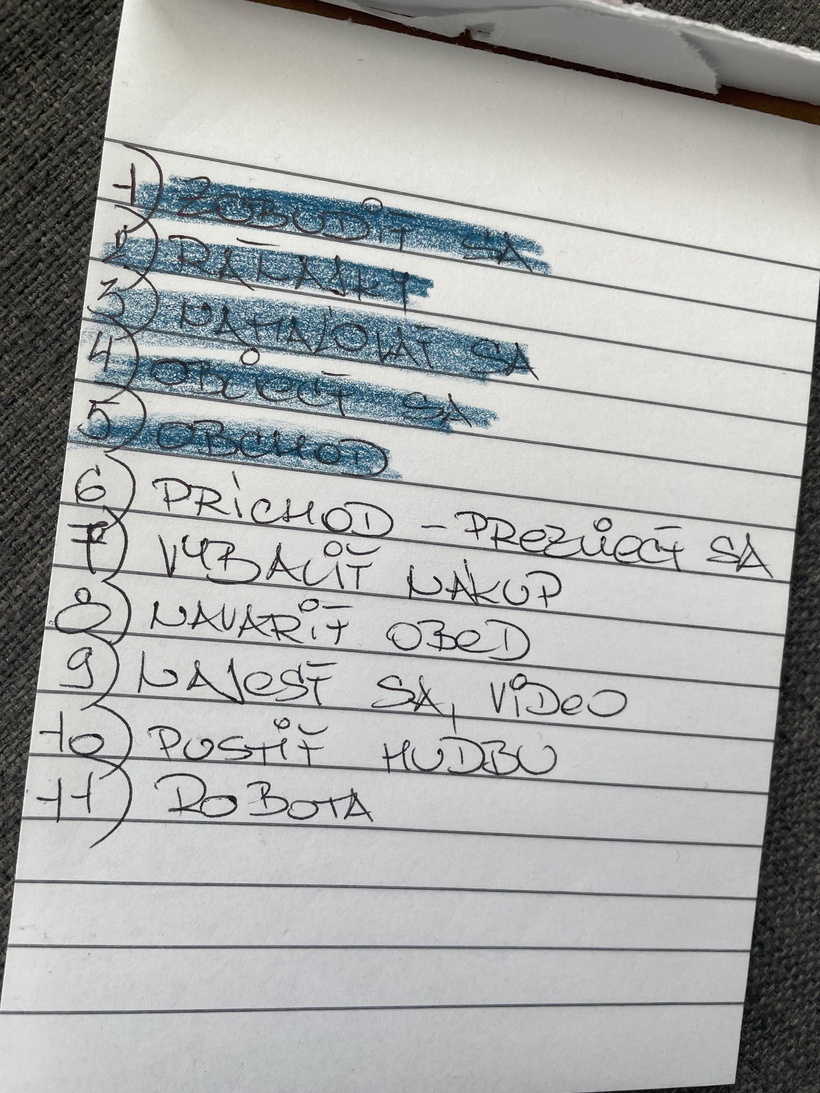 1) ZOBUDIŤ SA
2) RAŇAJKY
3) NAMAĽOVAŤ SA
4) OBLIECŤ SA
5) OBCHOD
6) PRÍCHOD – PREZLIECŤ SA
7) VYBALIŤ NÁKUP
8) NAVARIŤ OBED
9) NAJESŤ SA, VIDEO
10) PUSTIŤ HUDBU
11) ROBOTA